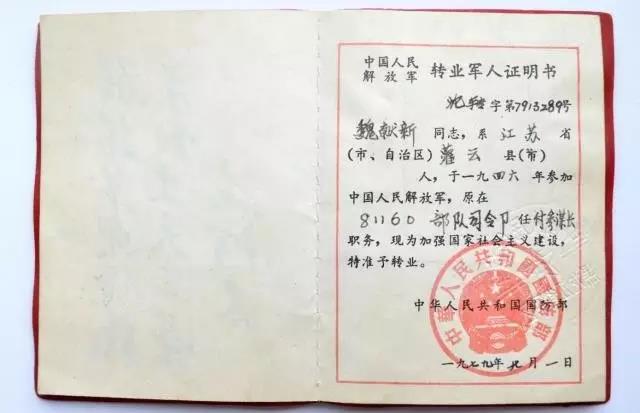 中国人民
解放军 转业军人证明书
沈转字第7913289号
魏献新同志,系江苏省
(市、自治区)灌云县(市)
人,于一九四六年参加
中国人民解放军,原在
81160部队司令卩任付参谋长
职务,现为加强国家社会主义建设,
特准予转业。
中华人民共和国国防部
中华人民共和国国防部
一九七九年 月一日